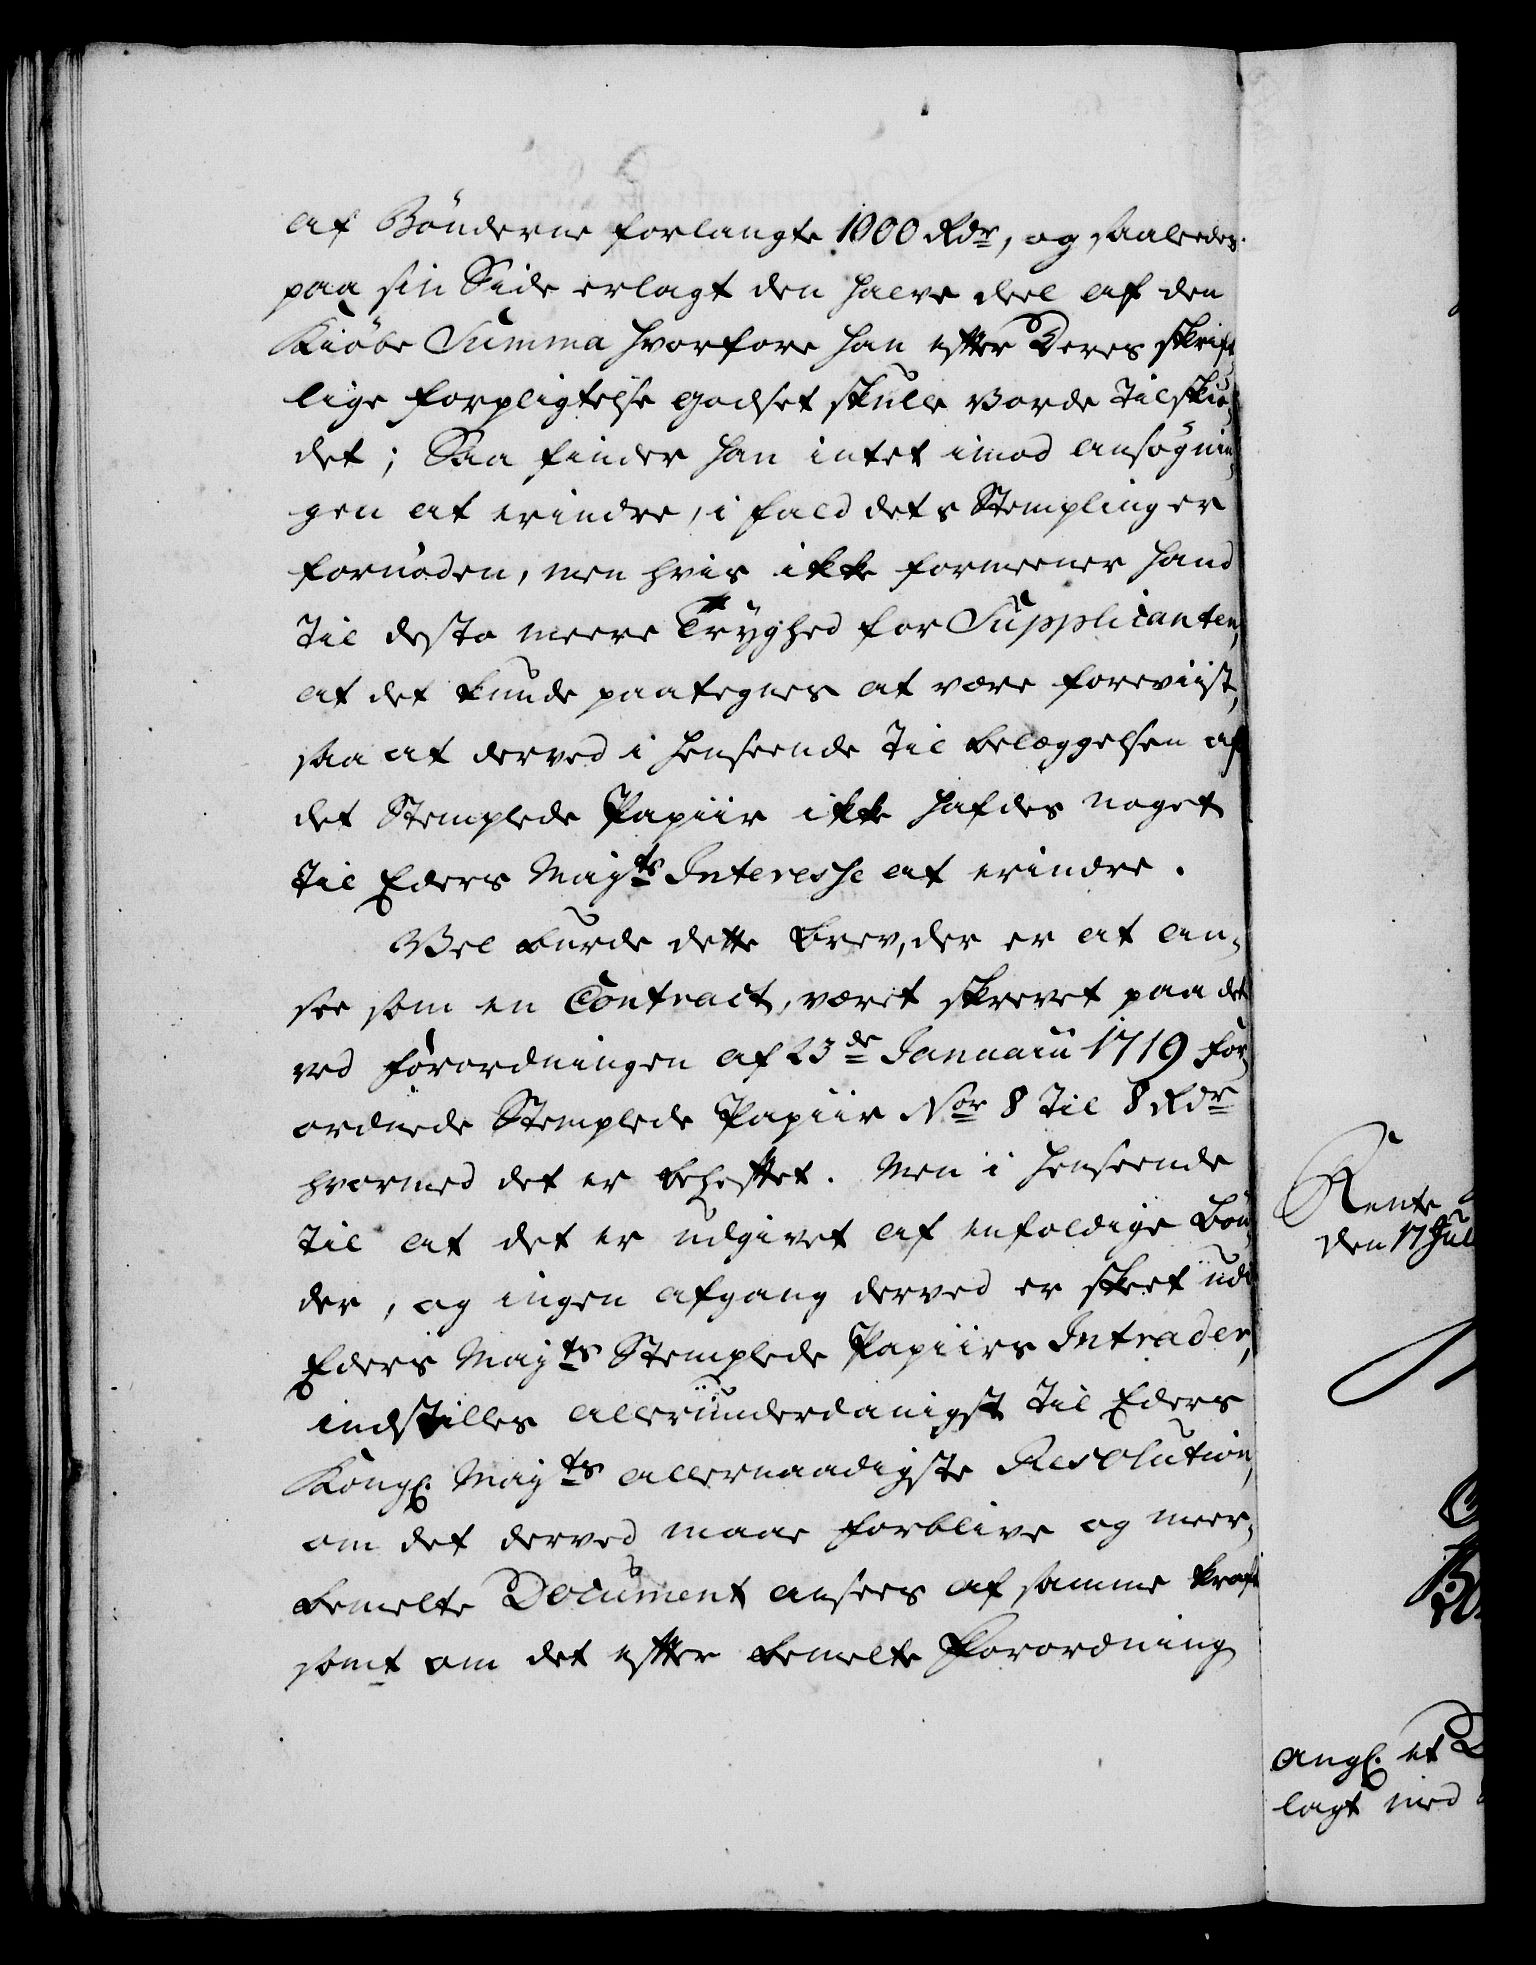 af Bönderne forlangte 1000 Rdr, og saaledes
paa sin Side erlagt den halve deel af den
Kiöbe Summa hvorfore han efter Deres skrift,
lige forpligtelse godset skulle vorde tilskiö,
det; Saa finder han intet imod ansögnin,
gen at erindre, i fald dets Stempling er
fornöden, men hvis ikke formeener hand
til desto meere Tryghed for Supplicanten,
at det kunde paategnes at være foreviist,
saa at derved i henseende til belæggelsen af
det Stemplede Papiir ikke hafdes noget
til Eders Mayts Interesse at erindre.
Vel burde dette brev, der er at an,
see som en Contract, været skrevet paa det
ved forordningen af 23de Januarii 1719 for,
ordnede Stemplede Papiir Nor 8 til 8 Rdr
hvormed det er behæftet. Men i henseende
til at det er udgivet af enfoldige bön,
der, og ingen afgang derved er skeet udi
Eders Mayts Stemplede Papiirs Intrader,
indstilles allerunderdanigst til Eders
Kongl. Mayts allernaadigste Resolution,
om det derved maae forblive og meer,
bemelte Document ansees af samme kraft
som om det efter bemelte Forordning
Rente
den 17 Jul
angl. et D
lagt med